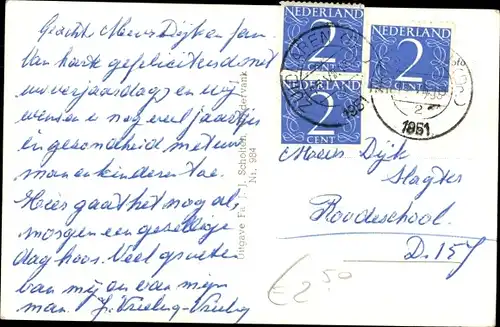 Geachte Mevr Dijk en fam.
Van harte gefeliciteerd met
uw verjaardag en wij
wensen u nog veel jaartjes
in gezondheid met uw
man en kinderen toe.
Hier gaat het nog al,
morgen een gezellige
dag hoor. Veel groeten
van mij en van mijn
man.
Uitgave Fa J. J. Scholten,
Nr. 984
NEDERLAND
2
CENT
NEDERLAND
2
CENT
NEDERLAND
2
CENT
1951
1951
2
Mevr Dijk
Slagter
Roodeschool.
D. 157
€ 2.50